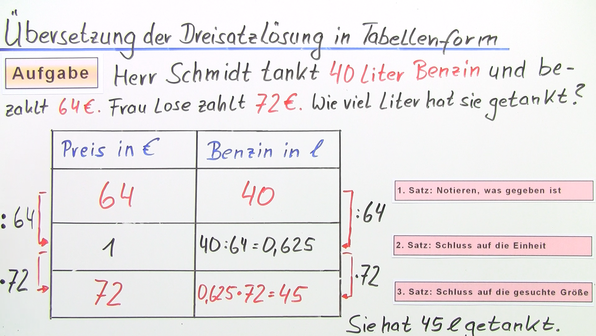 Übersetzung der Dreisatzlösung in Tabellenform
Aufgabe Herr Schmidt tankt 40 Liter Benzin und be-
zahlt 64€. Frau Lose zahlt 72€. Wie viel Liter hat sie getankt?
Preis in € Benzin in l
64 40
1. Satz: Notieren, was gegeben ist
:64 :64
1 40:64=0,625
2. Satz: Schluss auf die Einheit
·72 ·72
72 0,625·72=45
3. Satz: Schluss auf die gesuchte Größe
Sie hat 45l getankt.